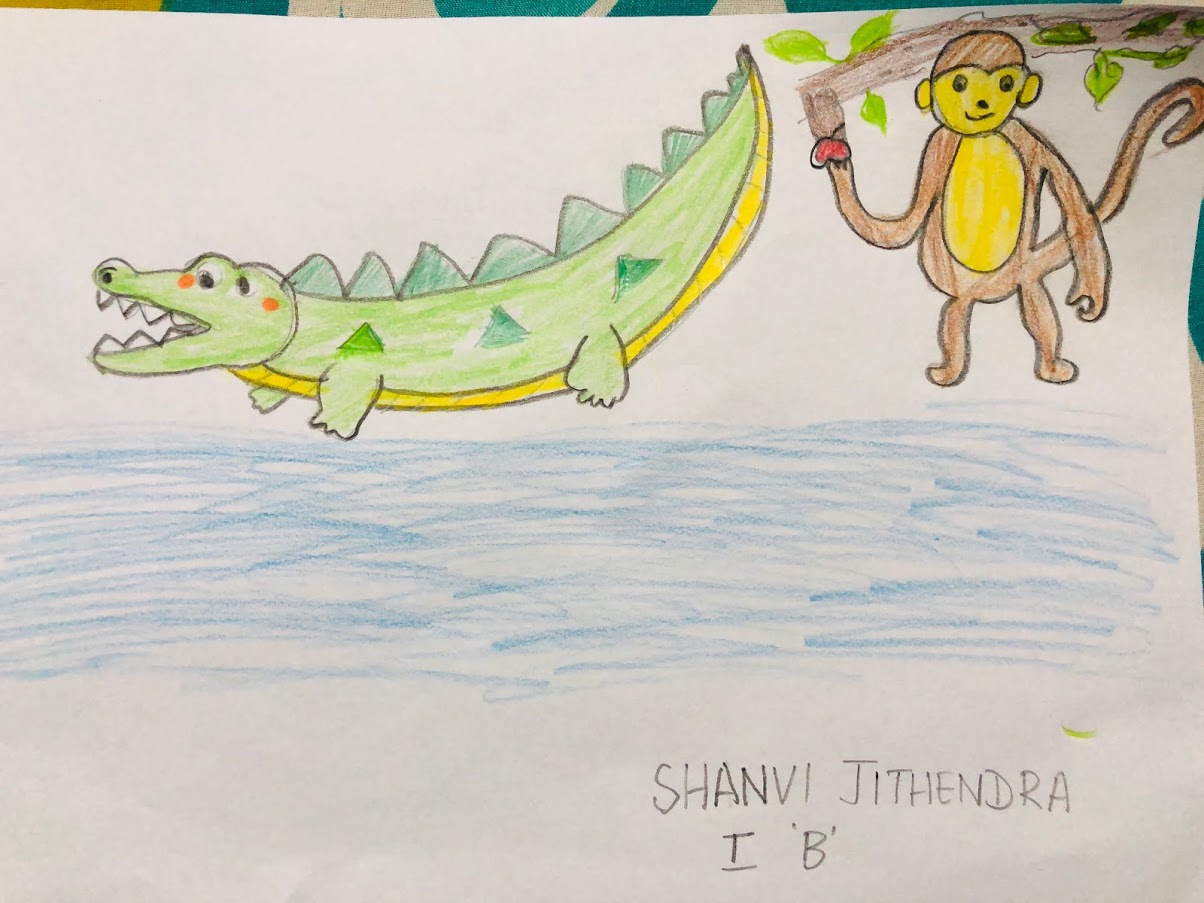 SHANVI JITHENDRA
I 'B'